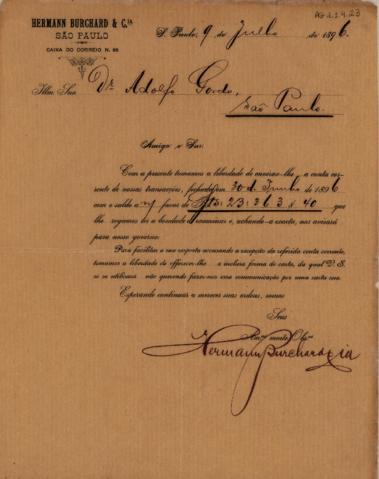 HERMANN BURCHARD & C.IA
SÃO PAULO
CAIXA DO CORREIO N. 
S. Paulo, 9 de Julho de 1896.
AG 1.1.4.23
Illmo Snr. Dr. Adolfo Gordo,
São Paulo.
Amigo e Snr.
Com a presente tomamos a liberdade de enviar-lhe a conta cor-
rente de nossas transacções, fechada em 30 de Junho de 1896
com o saldo a n/ favor de 23:263$40 que
lhe rogamos a bondade de examinar e, achando-a exacta, nos avisará
para nosso governo.
Para facilitar a sua resposta accusando a recepção da referida conta corrente,
tomamos a liberdade de offerecer-lhe a inclusa forma de carta, da qual V. S.
se utilisará não querendo fazer-nos essa communicação por uma carta sua.
Esperando continuar a merecer suas ordens, somos
Seus
Hermann Burchard & Cia